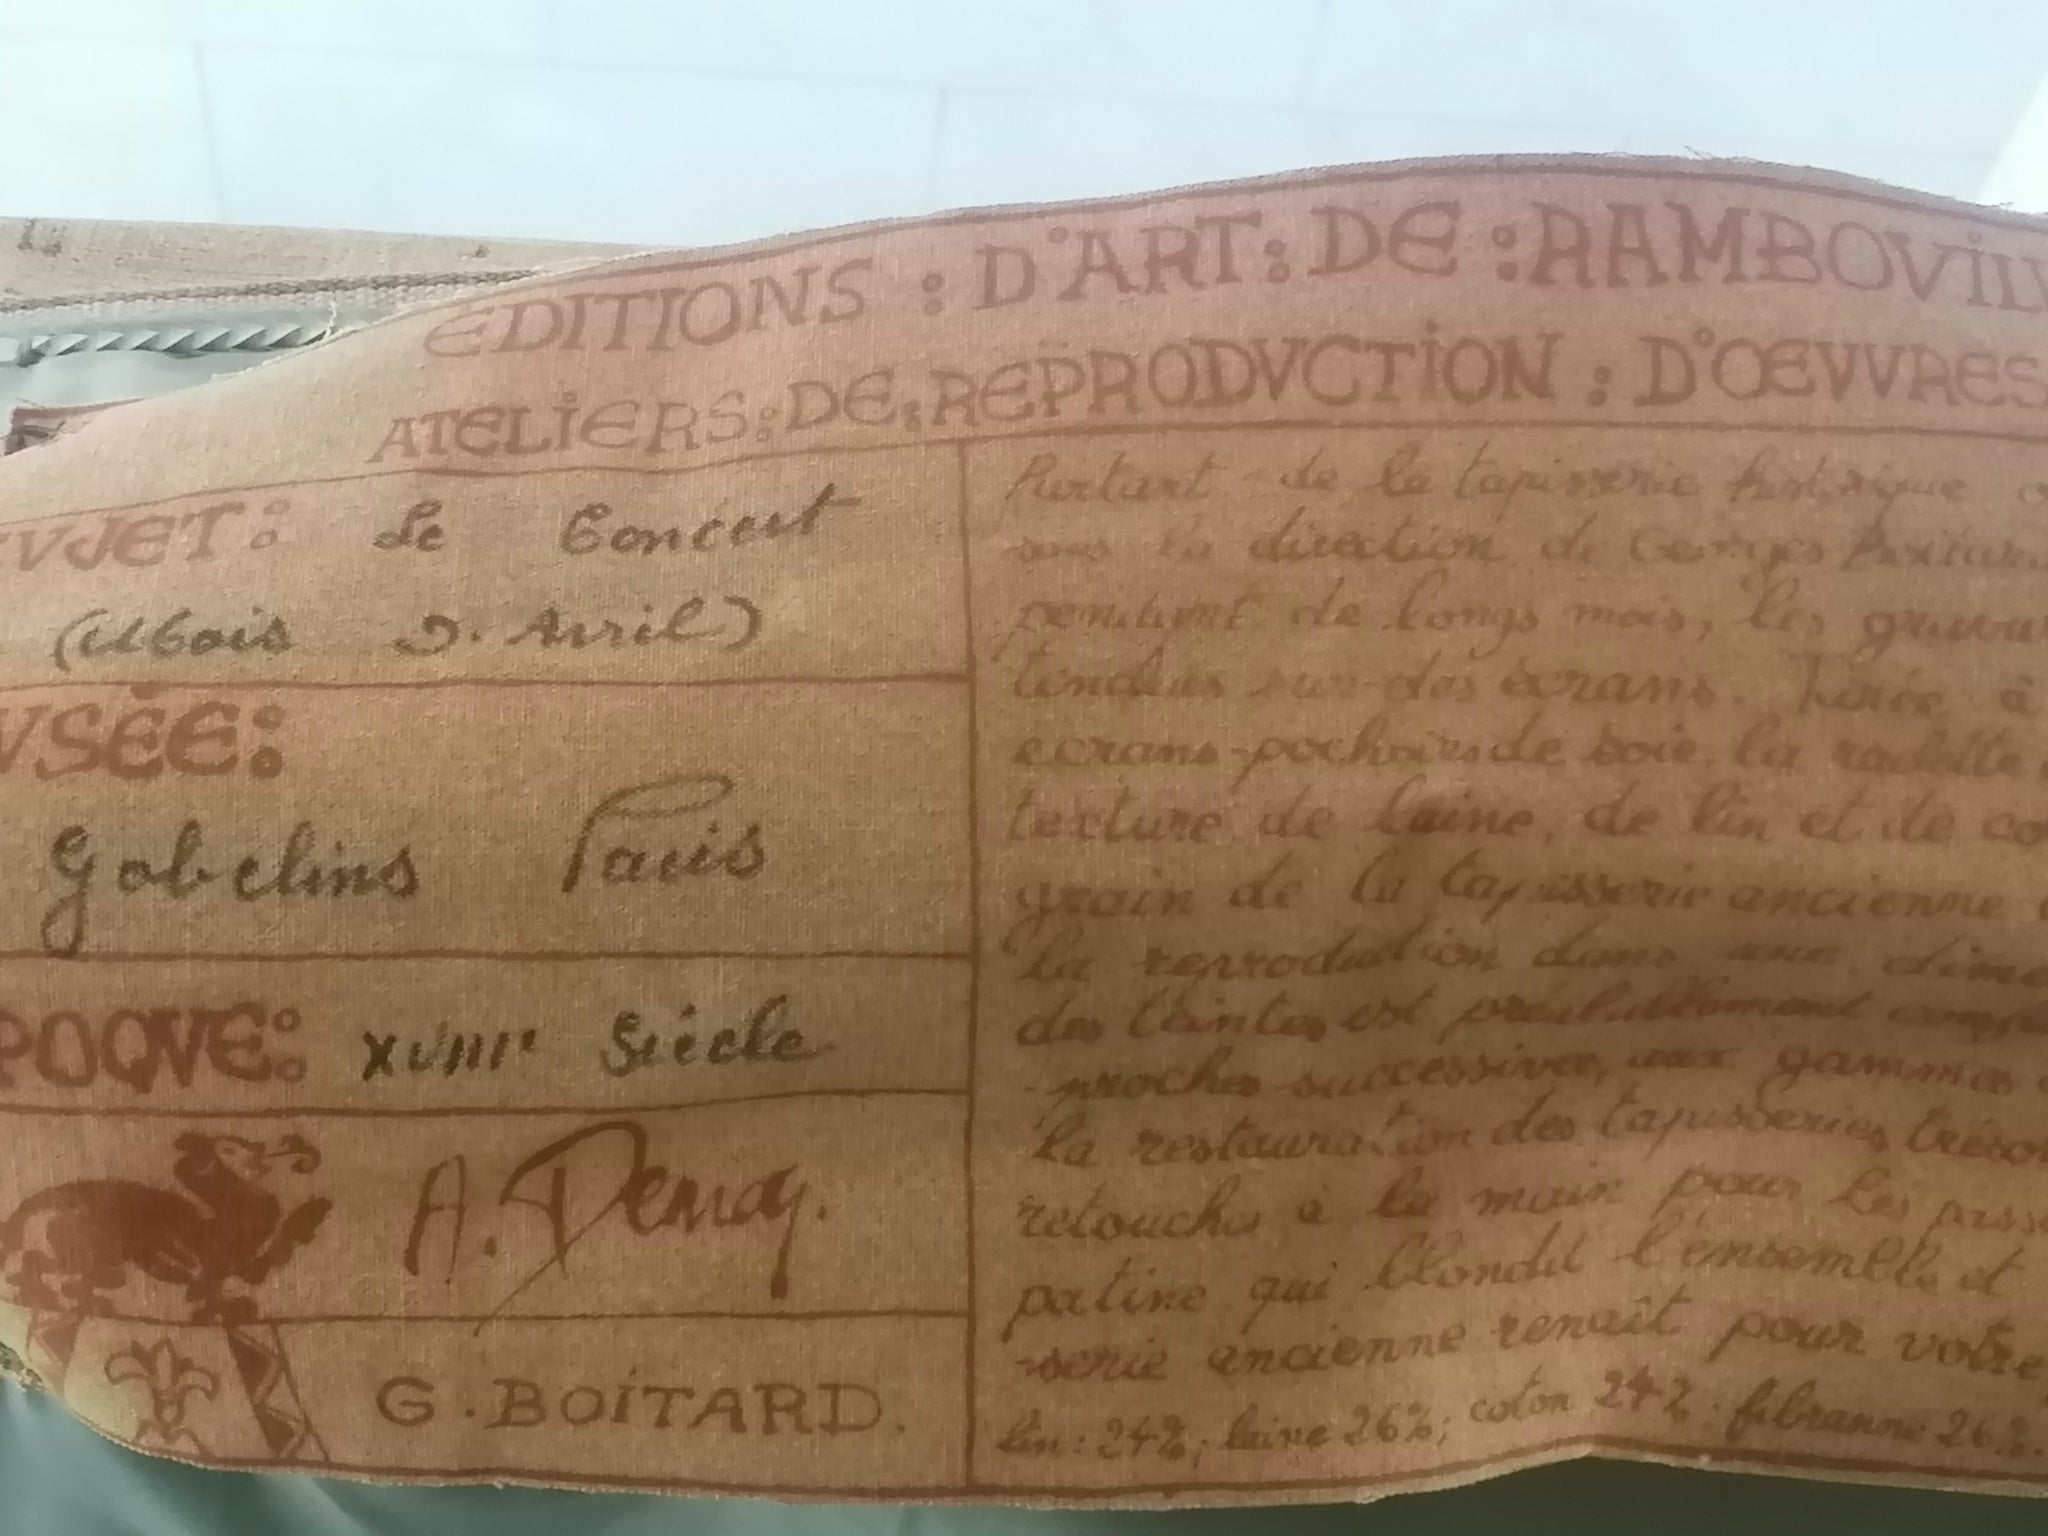 EDITIONS : D'ART : DE : RAMBOVIL
ATELIERS : DE : REPRODVCTION : D'ŒVVRES
VJET : Le Concert
(Abois D. Avril)
VSÉE :
Gobelins Paris
POQVE : XVIIIe Siècle
A. Demoy.
G. BOITARD.
Partant de la tapisserie historique
sous la direction de Georges Boitard
pendant de longs mois, les gravu
tendues sur des écrans. Livrée à
ecrans-pochoirs de soie, la raclette
texture de laine, de lin et de co
grain de la tapisserie ancienne
la reproduction dans une dime
des teintes est préalablement comp
-proches successives, aux gammes
la restauration des tapisseries, trésor
retouches à la main pour les pass
patine qui blondit l'ensemble et
-serie ancienne renaît pour votre
lin : 24% ; laine 26% ; coton 24% . fibranne 26%.